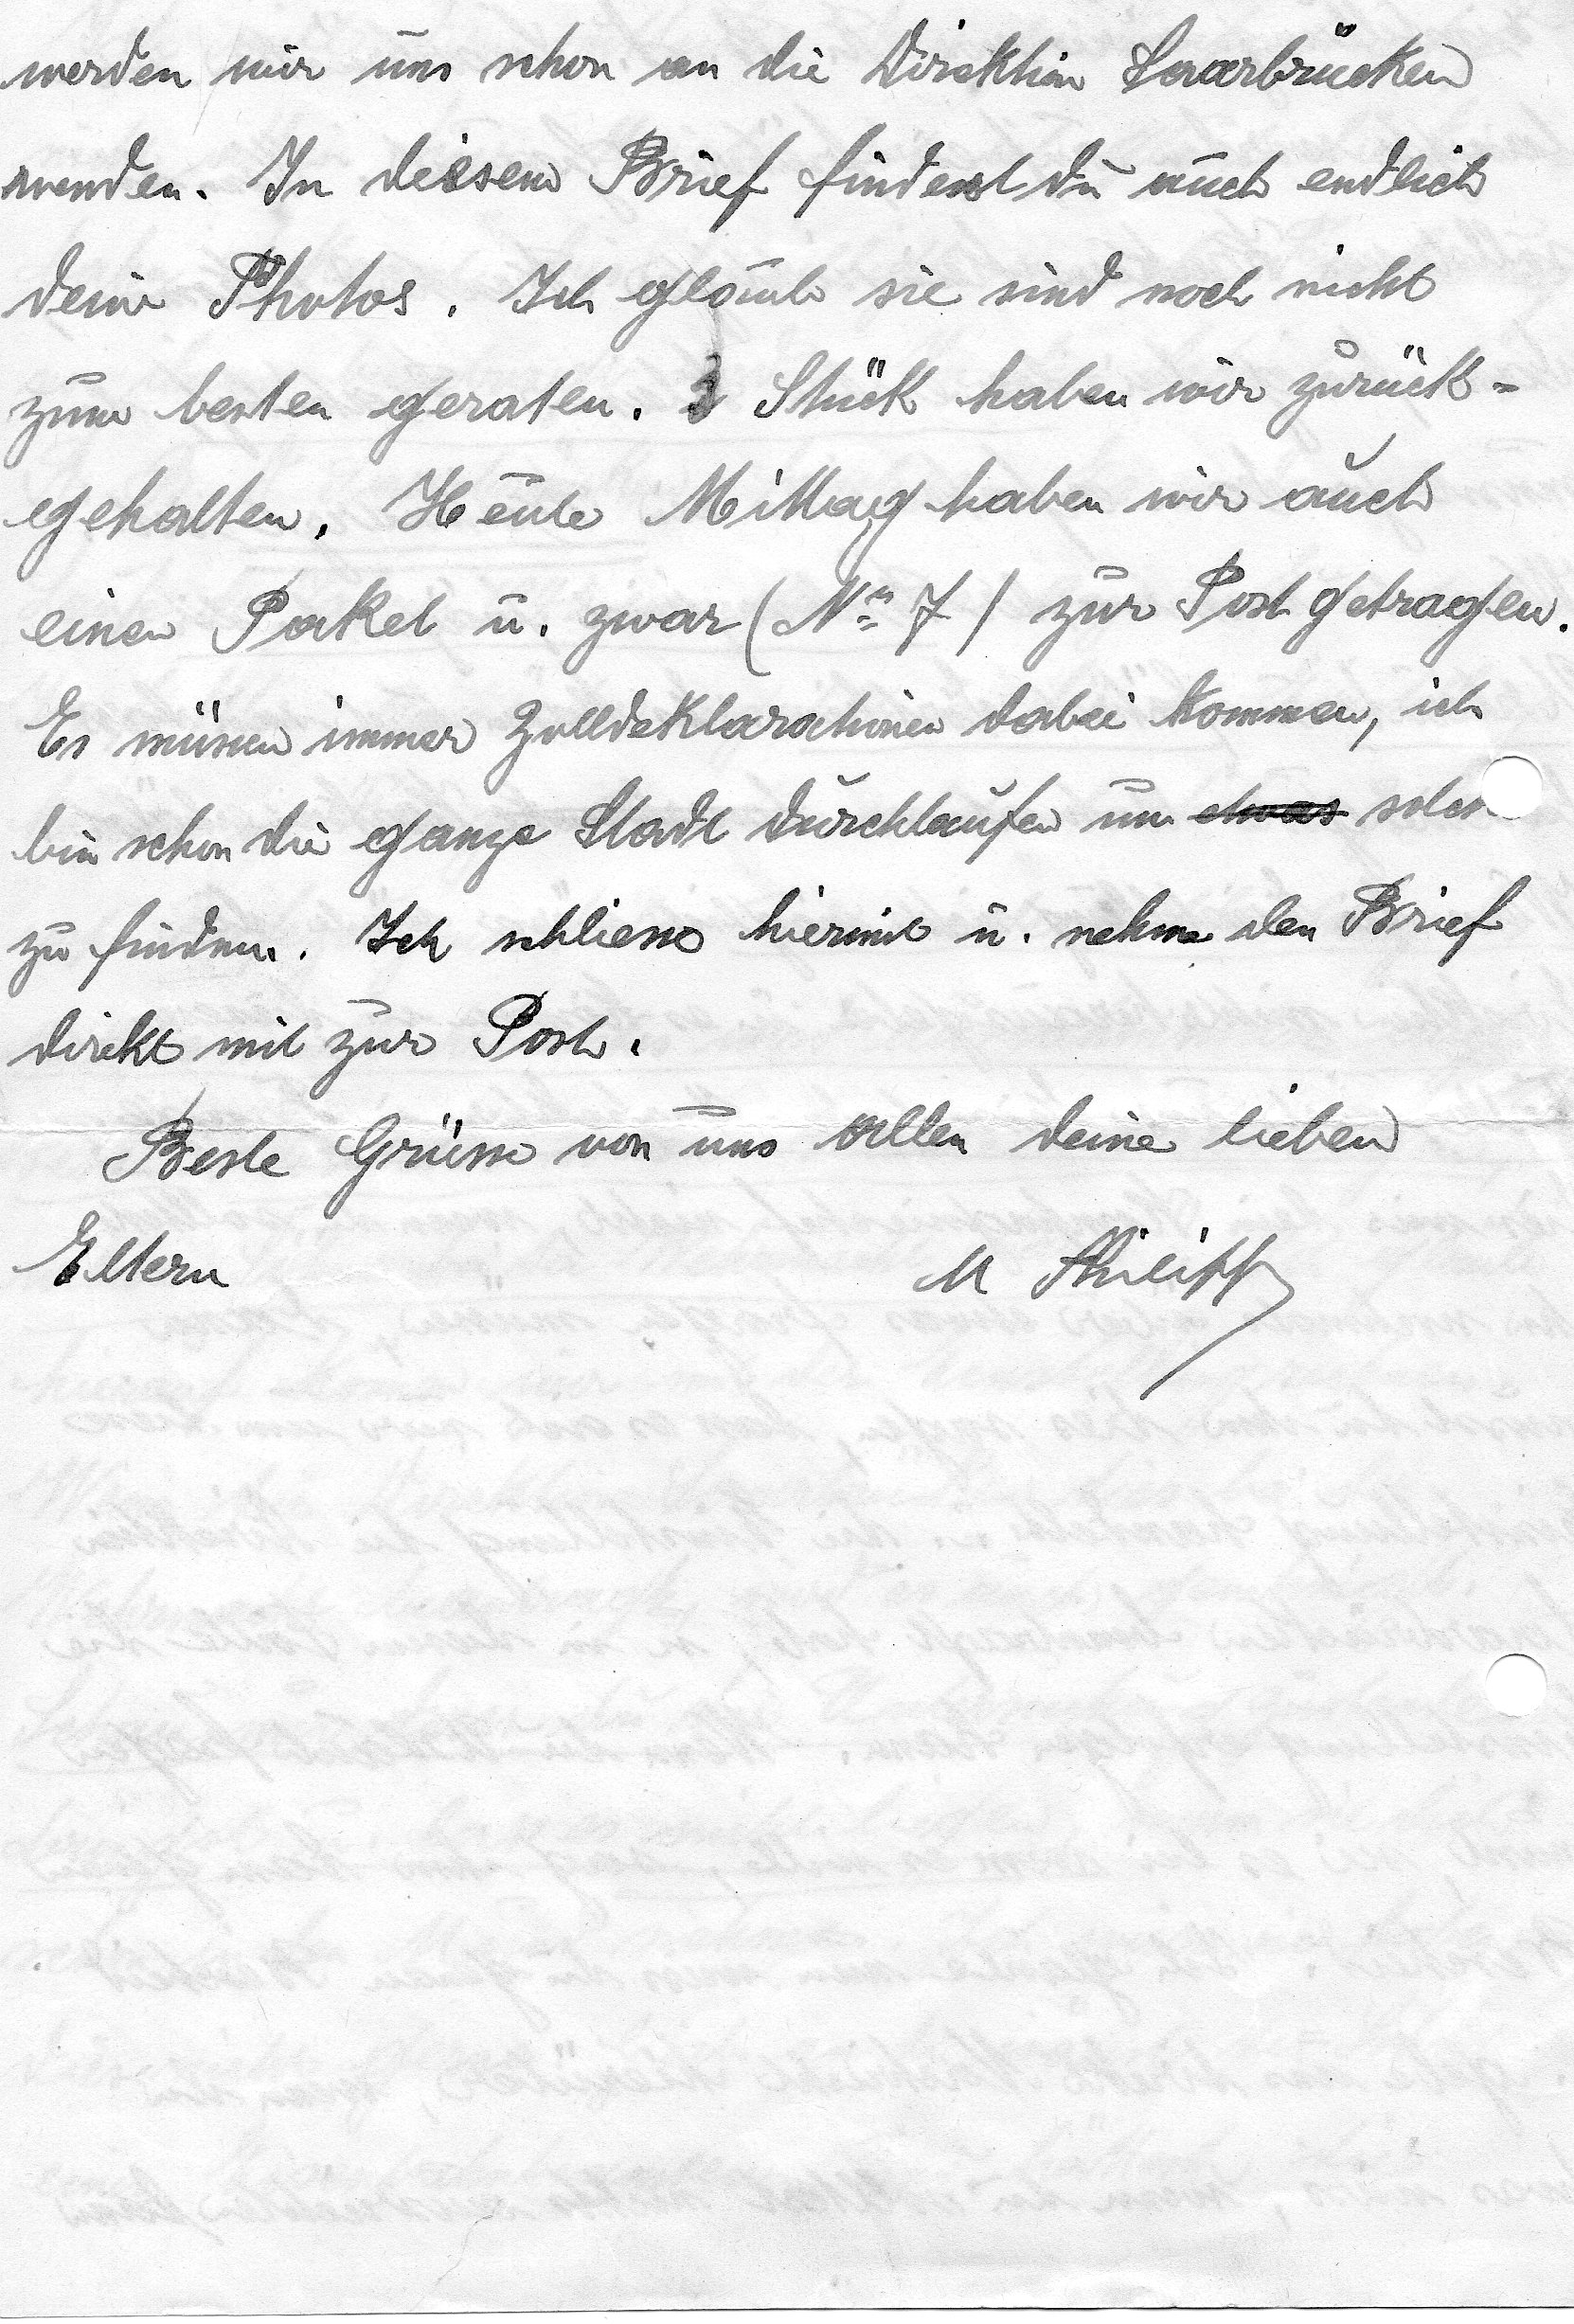 werden wir uns schon an die Direktion Saarbrücken
wenden. In diesem Brief findest du auch endlich
deine Photos. Ich glaube sie sind noch nicht
zum besten geraten. Stück haben wir zurück-
gehalten. Heute Mittag haben wir auch
einen Paket u. zwar (Nr 7) zur Post getragen.
Es müssen immer Zolldeklarationen dabei kommen, ich
bin schon die ganze Stadt durchlaufen um etwas solche
zu finden. Ich schliesse hiermit u. nehme den Brief
direkt mit zur Post.
Beste Grüsse von uns allen deine lieben
Eltern M Philipp